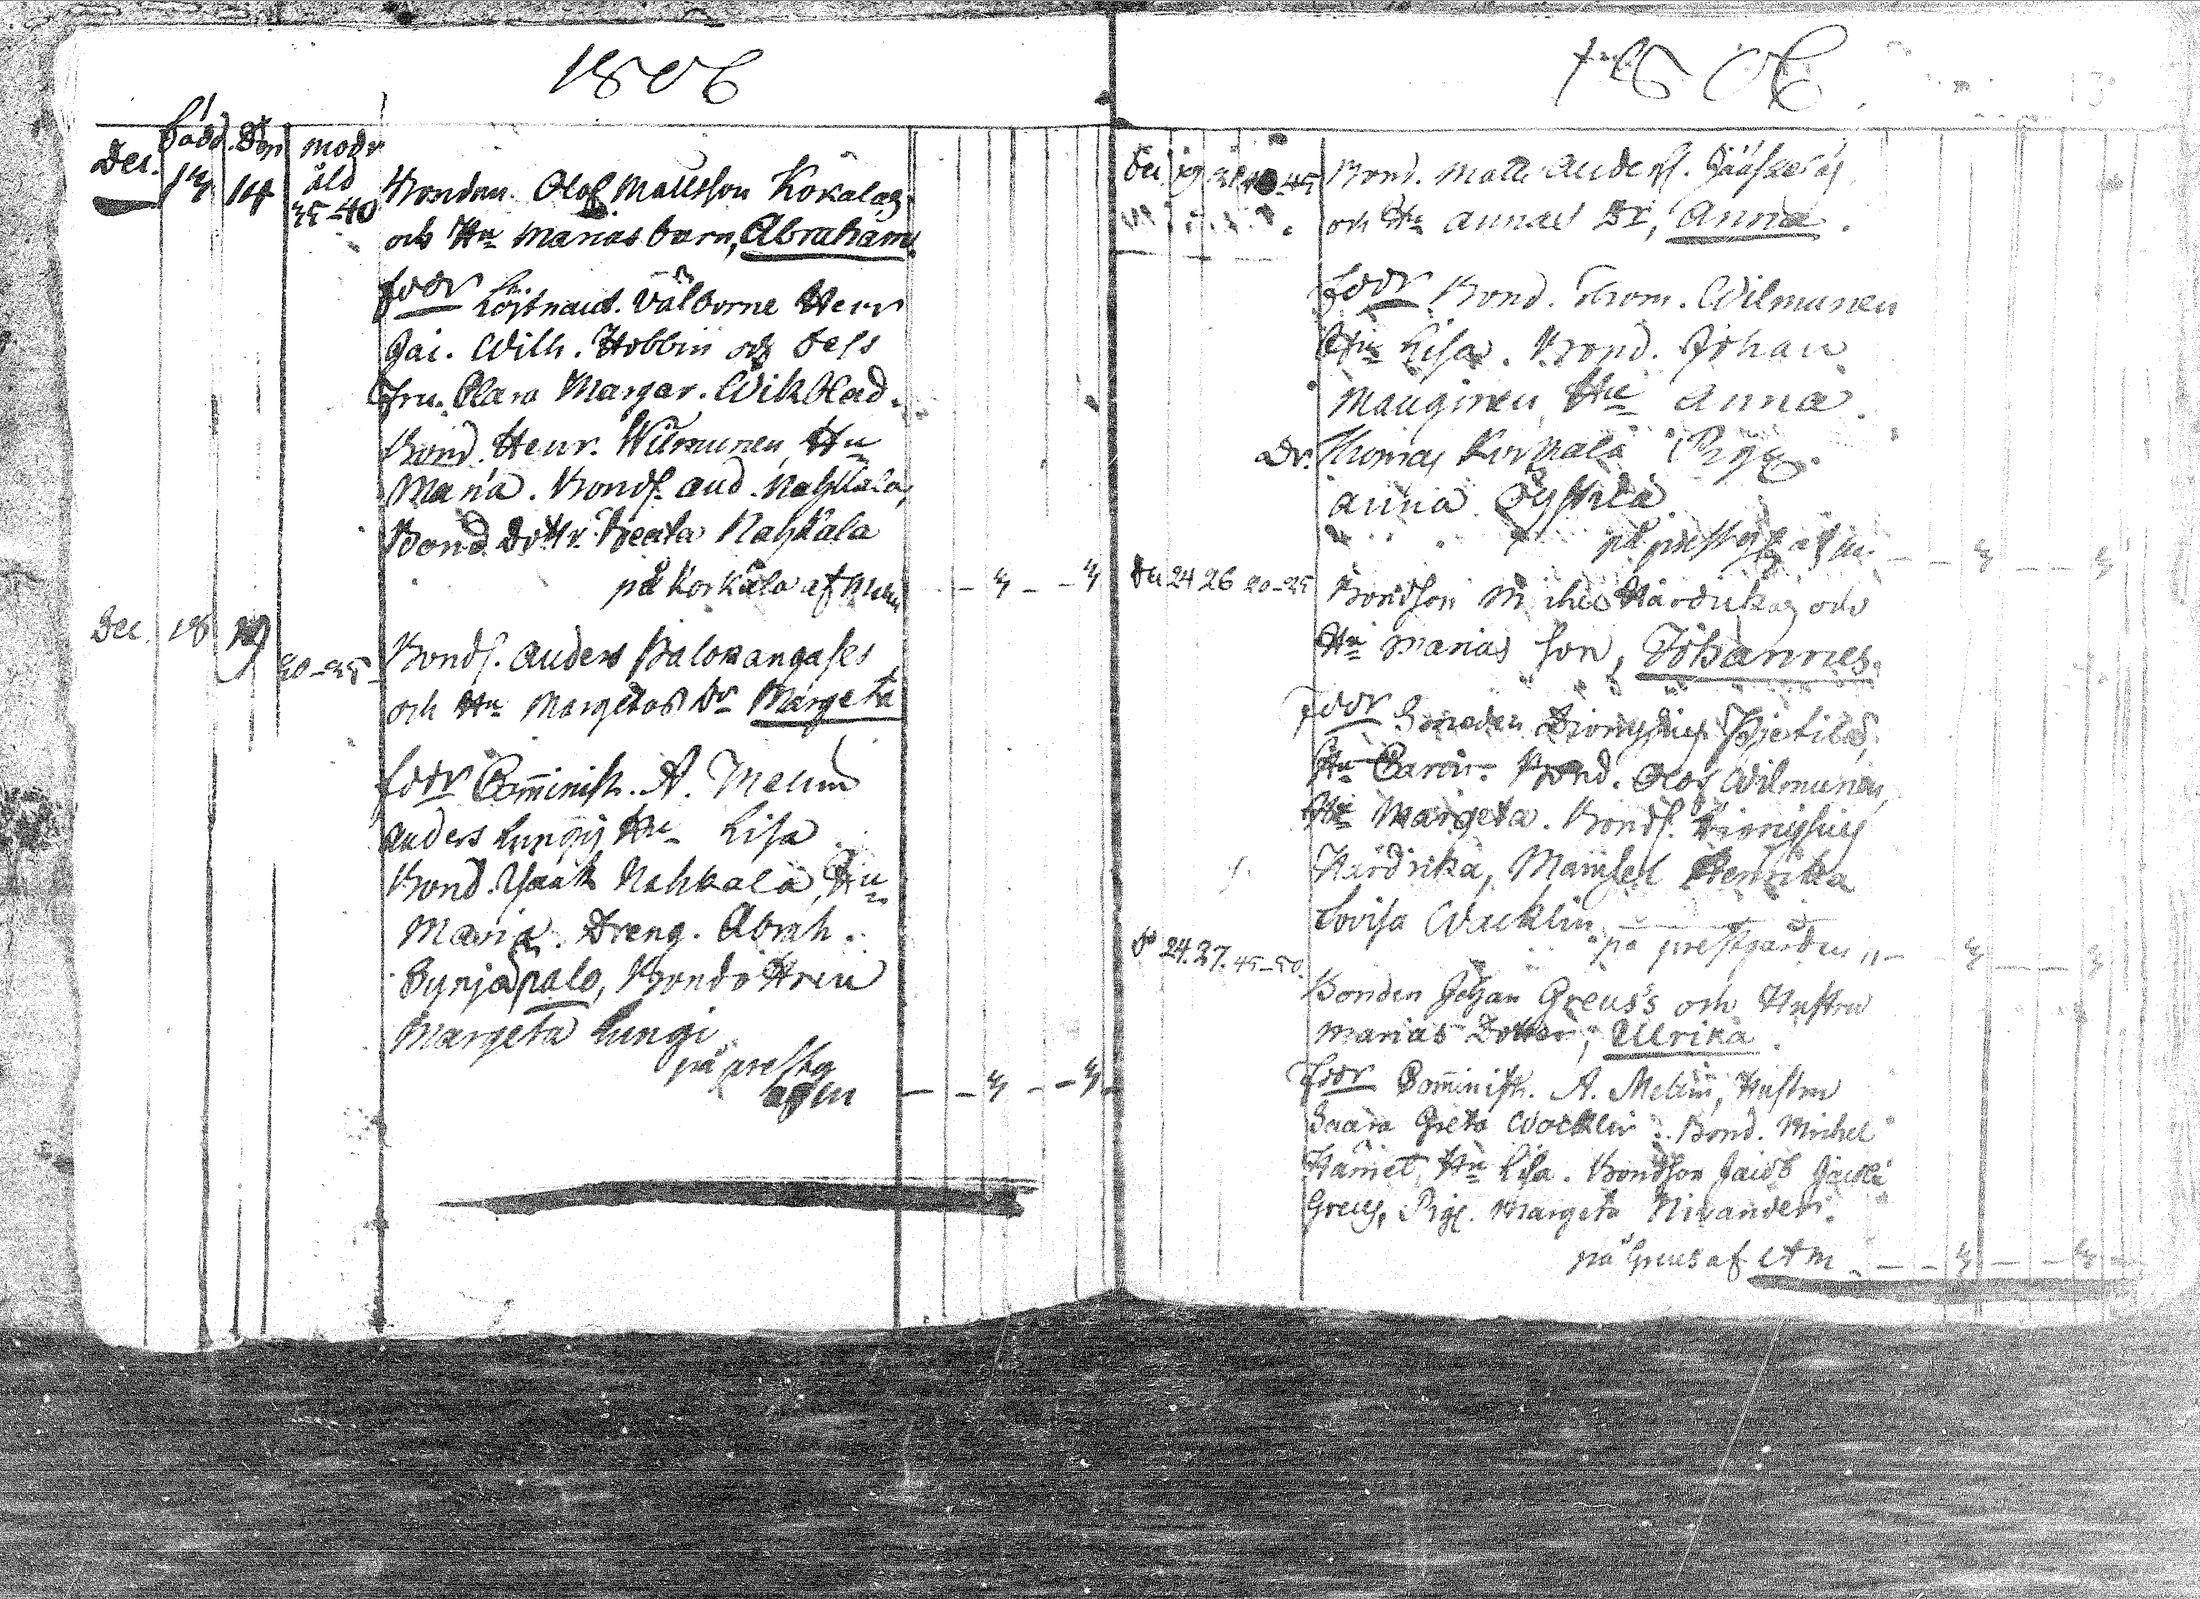 1806
Född. Döpt modr
Dec. 13 14 åld
35-40
Bonden Olof Mattsson Kokalas
och Hu Marias barn, Abraham
foðr Löjtnant. Välborne Herr
Jac. Wilh. Hobbin och dess
Fru Clara Margar. Wikblad.
Bond. Henr. Wilmunen, Hu
Maria. Bonds. And. Nahkala,
Bond. Dottr. Beata Nahkala
på Korkala af
Dec. 18 19 30-35
Bonds. Anders Palokangases
och Hu Margetas Dr Margeta
foðr Comminist. A. Melin
Anders Lungi, Hu Lisa
Bond. Isaak Nahkala, Hu
Maria. Dreng. Abrah.
palo, Bonde Hustru
Margeta Lungi
på prestg
af m
1806
Dec 40-45 Bond. Matts Anders. Jääskeläs
och Hu Annas Dr, Anna.
foðr Bond. Thom. Wilmunen
Hu Lisa. Bond. Johan
Manginen Hu Anna.
Dr. Thomas Korkala Pig.
Anna
på prestg af m
Dec 24 26 20-25 Bondson Härdrikas och
Hu Marias son, Johannes.
foðr Dionysius
Hu Carin. Bond. Olof Wilmunen,
Hu Margeta. Bonds. Dionysius
Härdrika, Mamsel Henrika
Lovisa Wacklin
på prestgården
Do 24. 27. 45-50.
Bonden Johan Greus's och Hustru
Marias Dotter, Ullrika.
foðr Comminist. A. Melin, Hustru
Saara Greta Wacklin. Bond. Michel
Hannet, Hu Lisa. Bondson Jacob
Greus, Pig. Margeta Nivander.
på Greus af AM